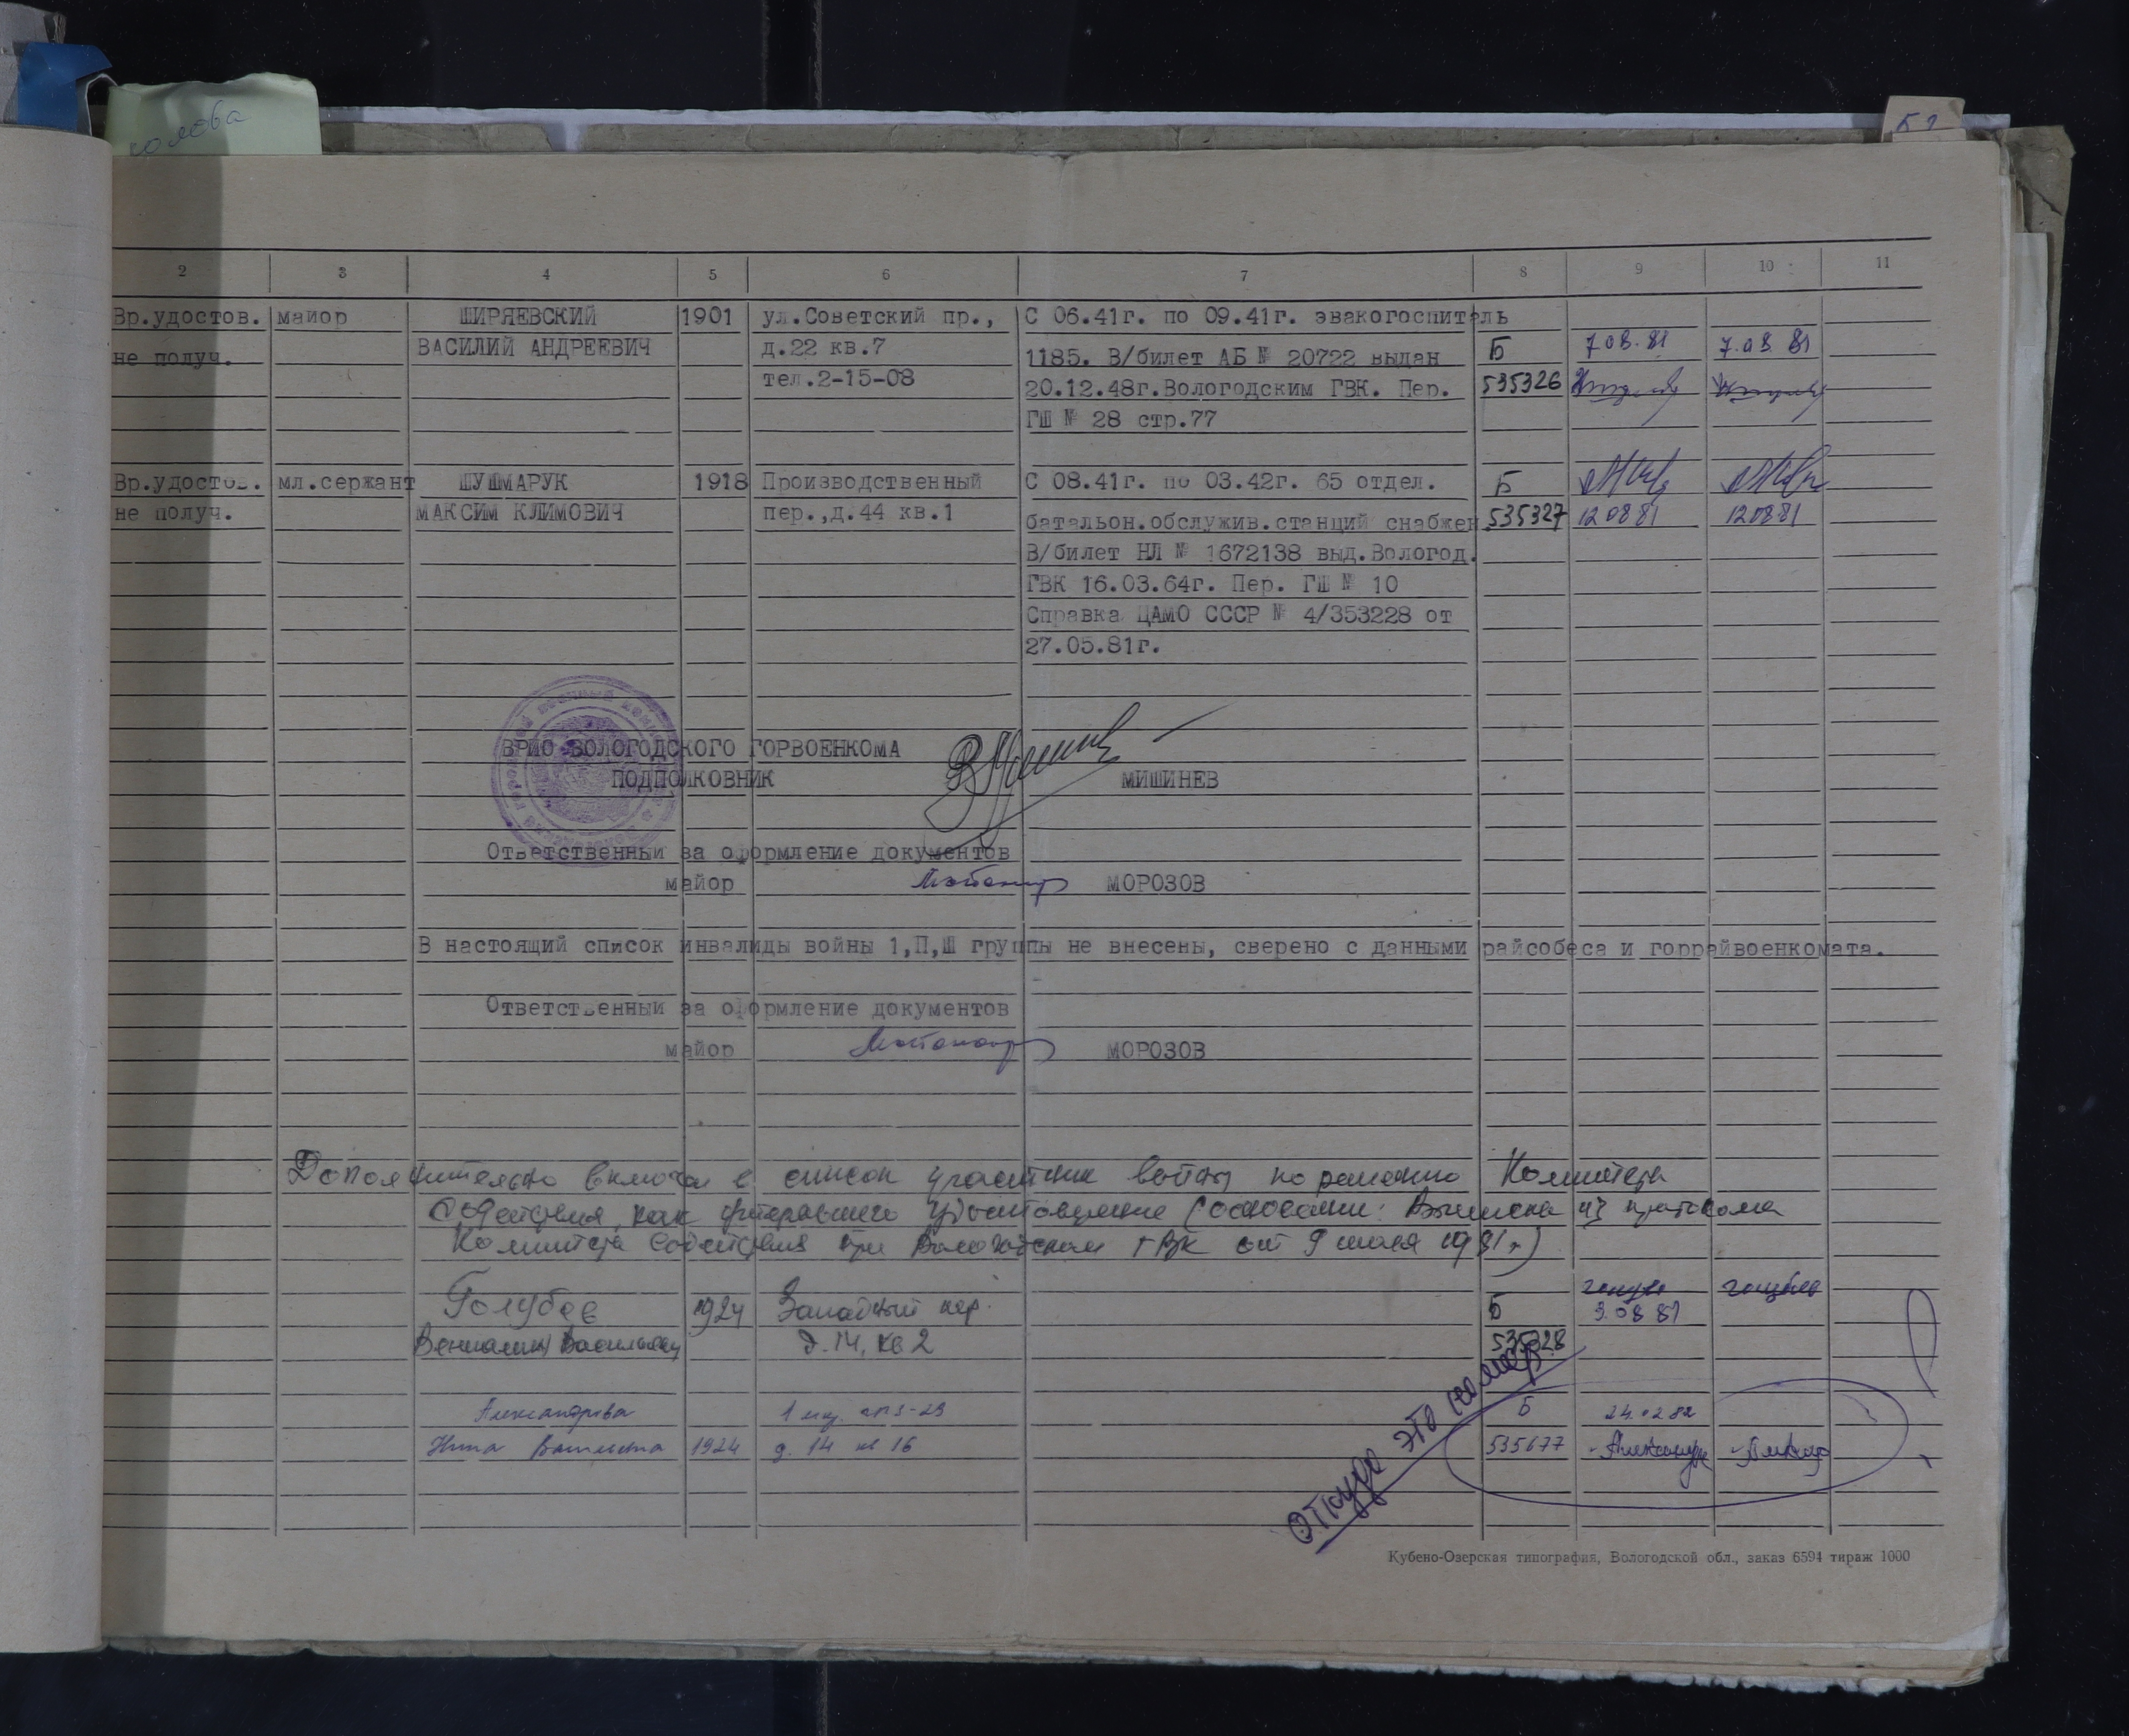 2 3 4 5 6 7 8 9 10 11
Вр.удостов. майор ШИРЯЕВСКИЙ 1901 ул.Советский пр., С 06.41г. по 09.41г. эвакогоспиталь
не получ. ВАСИЛИЙ АНДРЕЕВИЧ д.22 кв.7 1185. В/билет АБ № 20722 выдан Б 7 08.81 7.08 81
тел.2-15-08 20.12.48г.Вологодским ГВК. Пер. 535326
ГШ № 28 стр.77
Вр.удостов. мл.сержант ШУШМАРУК 1918 Производственный С 08.41г. по 03.42г. 65 отдел. Б
не получ. МАКСИМ КЛИМОВИЧ пер.,д.44 кв.1 батальон.обслужив.станций снабжен. 535327 12 08 81 12 08 81
В/билет НЛ № 1672138 выд.Вологод.
ГВК 16.03.64г. Пер. ГШ № 10
Справка ЦАМО СССР № 4/353228 от
27.05.81г.
ВРИО ВОЛОГОДСКОГО ГОРВОЕНКОМА
ПОДПОЛКОВНИК МИШИНЕВ
Ответственный за оформление документов
майор МОРОЗОВ
В настоящий список инвалиды войны 1,П,Ш группы не внесены, сверено с данными райсобеса и горрайвоенкомата.
Ответственный за оформление документов
майор МОРОЗОВ
Дополнительно включен в список участник войны по решению Комитета
содействия, как утерявшего удостоверение (основание: Выписка из протокола
Комитета содействия при Вологодском ГВК от 9 июля 1981 г.)
Голубев 1924 Западный пер. Б 9.08 81
Вениамин Васильевич д. 14, кв 2 535328
Откуда это номер
Александрова Б 24.02 82
Нина 1924 д. 14 кв 16 535677
Кубено-Озерская типография, Вологодской обл., заказ 6594 тираж 1000